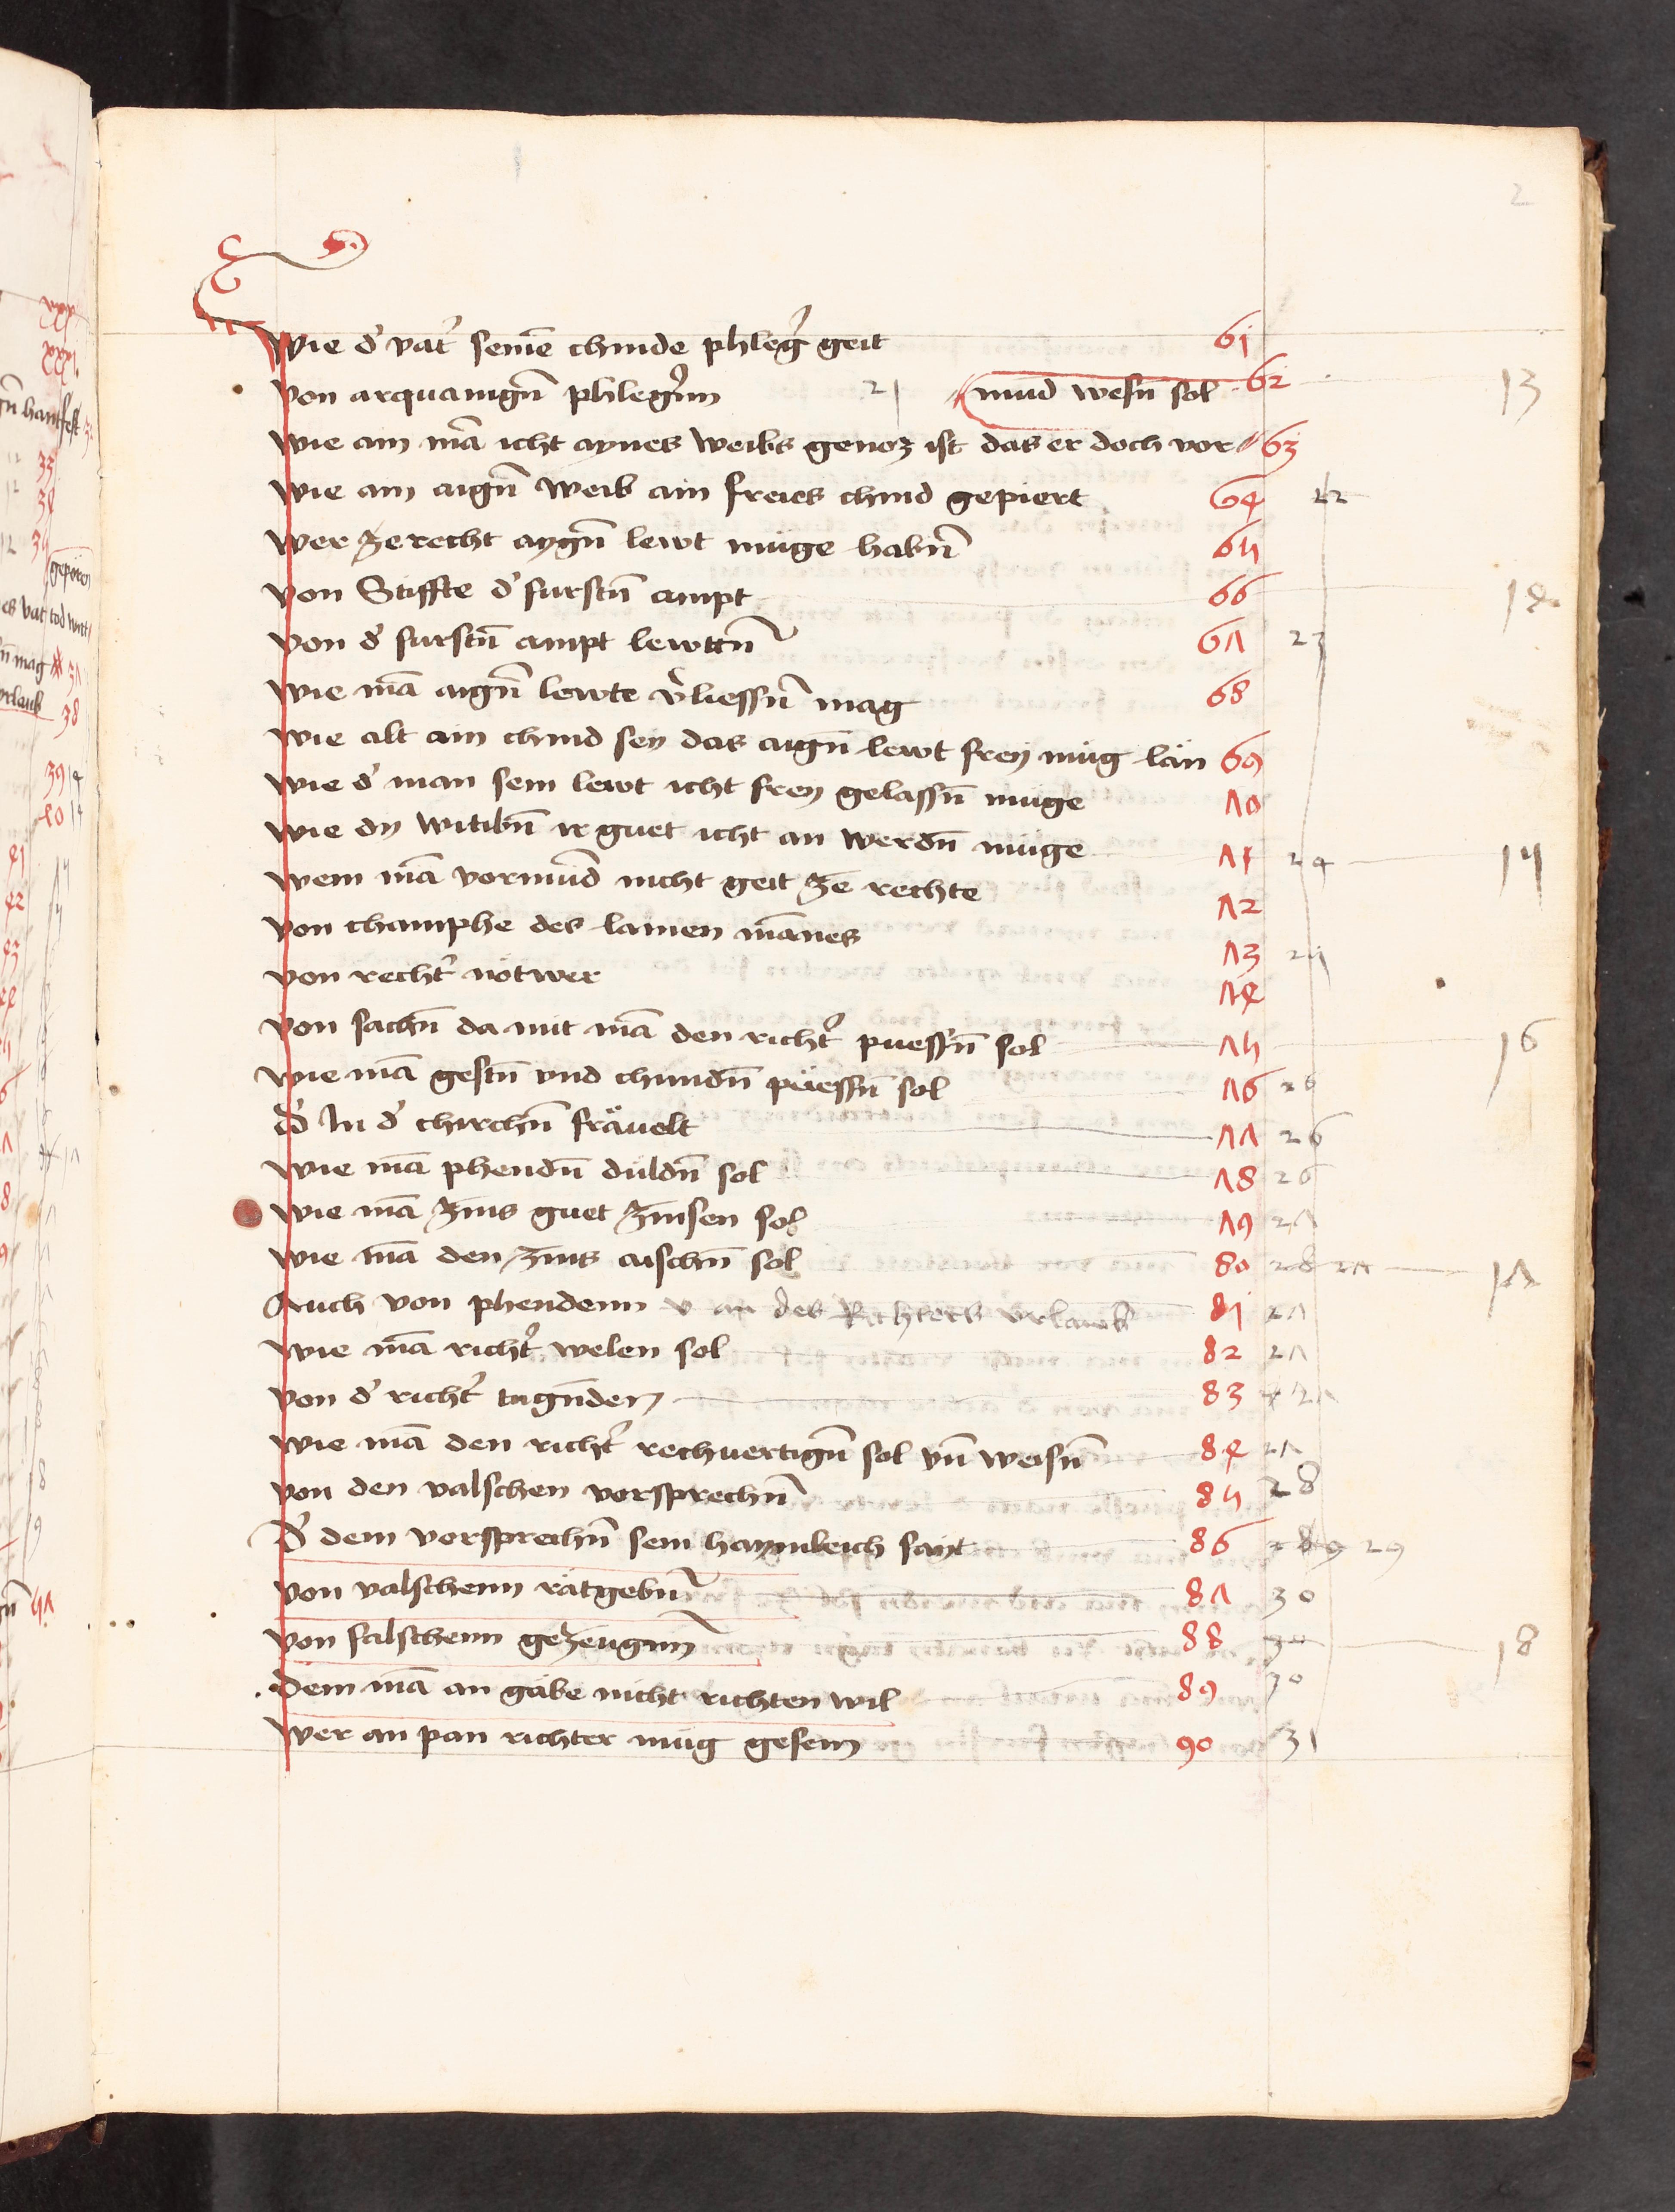 2
Wie d' vat' seinē chinde phleg' geit 61
Von arquanigñ phleg'inn 21 mūd wesñ sol 62 13
Wie ain mā icht aynes weibs genoz ist das er doch vor 63
Wie ain aigñ weib ain freies chind gepiert 64 22
Wer ze recht aygñ lewt muge habñ 65
Von Stiffte d' furstñ ampt 66 14
Von d' furstñ ampt lewttñ 67 23
Wie mā aigñ lewte v'liessñ mag 68
Wie alt ain chind sey das aigñ lewt frey müg län 69
Wie d' man sein lewt icht frey gelassñ müge 70
Wie dy witibñ ir guet icht an werdñ müge 71 24 15
Wem mā vormūd nicht geit ze rechte 72
Von champhe des lamen mānes 73 25
Von recht' nötwer 74
Von sachñ da mit mā den richt' puessñ sol 75 16
Wie mā gestñ vnd chundñ püessñ sol 76 26
D' In d' chirchñ frävelt 77 26
Wie mā phendñ duldñ sol 78 26
Wie mā zins guet zinsen sol 79 27
Wie mā den zins aischñ sol 80 28 27 17
Auch von phendenn v an des Richters vrlawb 81 27
Wie mā richt' welen sol 82 27
Von d' richt' tugñden 83 27
Wie mā den richt' rechvertigñ sol vñ weisñ 84 27
Von den valschen vorsprechñ 85 28
D' dem vorsprechñ sein haymleich sayt 86 29
Von valschenn rätgebñ 87 30
Von falschenn gezeugnn 88 30 18
Dem mā an gäbe nicht richten wil 89 30
Wer an pan richter müg gesein 90 31